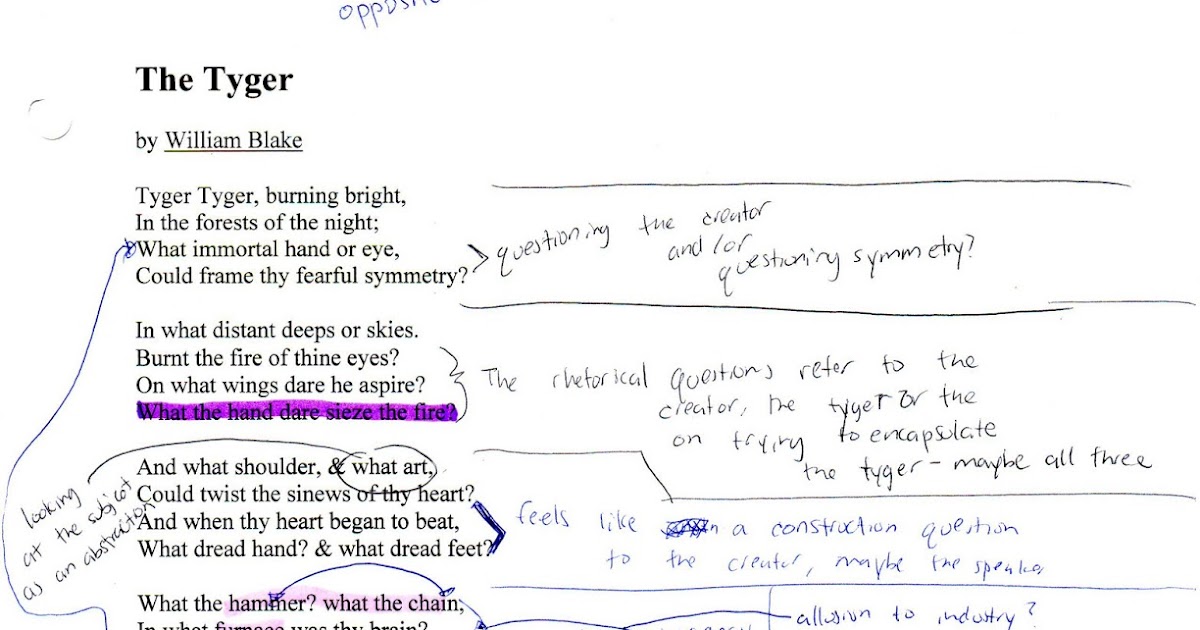 The Tyger
by William Blake
Tyger Tyger, burning bright,
In the forests of the night;
What immortal hand or eye,
Could frame thy fearful symmetry?
questioning the creator
and/or
questioning symmetry?
In what distant deeps or skies.
Burnt the fire of thine eyes?
On what wings dare he aspire?
What the hand dare sieze the fire?
The rhetorical questions refer to the
creator, the tyger or the
on trying to encapsulate
the tyger - maybe all three
And what shoulder, & what art,
Could twist the sinews of thy heart?
And when thy heart began to beat,
What dread hand? & what dread feet?
looking
at the subject
as an abstraction
feels like a construction question
to the creator, maybe the speaker
What the hammer? what the chain,
In what furnace was thy brain?
allusion to industry?